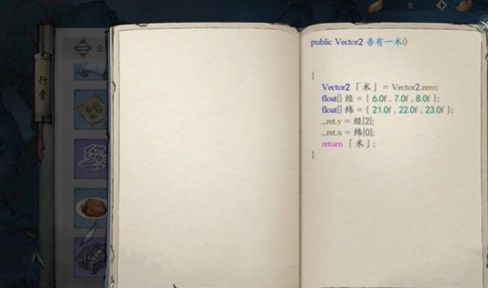 行囊
public Vector2 吾有一术()
{
Vector2 「术」 = Vector2.zero;
float[] 经 = { 6.0f , 7.0f , 8.0f };
float[] 纬 = { 21.0f , 22.0f , 23.0f };
_ret.y = 经[2];
_ret.x = 纬[0];
return 「术」;
}